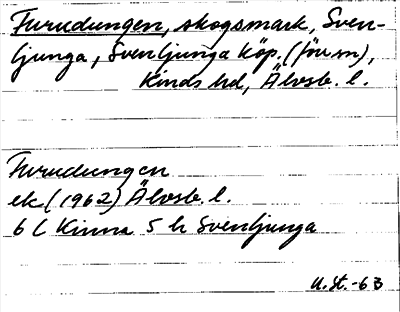 Furudungen, skogsmark, Sven-
ljunga, Svenljunga köp. (förs:n),
Kinds hd, Älvsb. l.
Furudungen
ek (1962) Älvsb. l.
6 C Kinna 5 h Svenljunga
U.St.-63